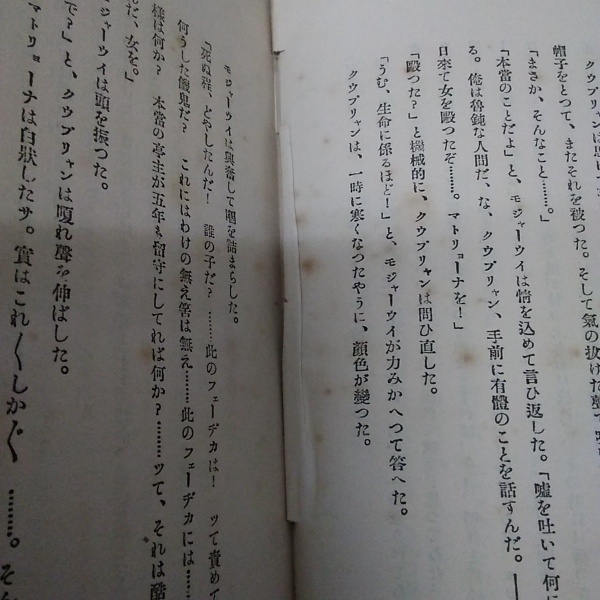 クウプリヤンは思は
帽子をとつて、またそれを被つた。そして氣の抜けた聲で
「まさか、そんなこと……。」
「本當のことだよ」と、モジャーウイは情を込めて言ひ返した。「嘘を吐いて何に
る。俺は魯鈍な人間だ、な、クウプリヤン、手前に有體のことを話すんだ。――
日來て女を毆つたぞ……。マトリョーナを!」
「毆つた?」と機械的に、クウプリヤンは問ひ直した。
「うむ、生命に係るほど!」と、モジャーウイが力みかへつて答へた。
クウプリヤンは、一時に寒くなつたやうに、顏色が變つた。
モジャーウイは興奮して咽を詰まらした。
「死ぬ程、どやしたんだ! 誰の子だ? ……此のフェーヂカは! ツて責めて
何うした餓鬼だ? これにはわけの無え筈は無え……此のフェーヂカには……
樣は何か? 本當の亭主が五年も留守にしてれば何か?……ツて、それは酷
だ、女を。」
モジャーウイは頭を振つた。
で?」と、クウプリヤンは嗄れ聲を伸ばした。
マトリョーナは白狀したサ。實はこれ〳〵しか〴〵……。そん